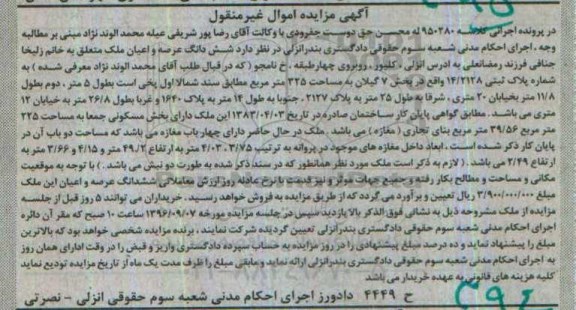 آگهی مزایده اموال غیرمنقول
در پرونده اجرائی کلاسه ۹۵۰۲۸۰ له محسن حق دوست جفرودی با وکالت آقای رضا پور شریفی عیله محمد الوند نژاد مبنی بر مطالبه
وجه ، اجرای احکام مدنی شعبه سوم حقوقی دادگستری بندرانزلی در نظر دارد شش دانگ عرصه و اعیان ملک متعلق به خانم زلیخا
جنافی فرزند رمضانعلی به آدرس انزلی ، کلیور ، روبروی چهارطبقه ، خ نامجو (که در قبال طلب آقای محمد الوند نژاد معرفی شده ) به
شماره پلاک ثبتی ۱۴/۲۱۲۸ واقع در بخش ۷ گیلان به مساحت ۳۲۵ متر مربع مطابق سند شمالا اول پخی است بطول ۵ متر ، دوم بطول
۱۱/۸ متر بخیابان ۲۰ متری ، شرقا به طول ۲۵ متر به پلاک ۲۱۲۷ ، جنوبا به طول ۱۴ متر به پلاک ۱۶۴۰ و غربا بطول ۲۶/۸ متر به خیابان ۱۲
متری می باشد . مطابق گواهی پایان کار ساختمان صادره در تاریخ ۱۳۸۳/۰۴/۰۳ این ملک دارای بخش مسکونی جمعا به مساحت ۲۲۵
متر مربع ۳۹/۵۶ متر مربع بنای تجاری ( مغازه ) می باشد . ملک در حال حاضر دارای چهار باب مغازه می باشد که مساحت دو باب آن در
پایان کار ذکر شده است ، ابعاد داخل مغازه های موجود در پروانه به ترتیب ۳/۷۵ . ۴/۰۳ متر به ارتفاع ۴۹/۲ متر و ۴/۱۵ و ۳/۶۶ متر به
ارتفاع ۲/۴۹ می باشد . ( لازم به ذکر است ملک مورد نظر همانطور که در سند ذکر شده به طورت دو نبش می باشد . ) با توجه به موقعیت
مکانی و مساحت و مطالح بکار رفته و جمیع جهات موثر و نیز قیمت با نرخ عادله روز ارزش معاملاتی ششدانگ عرصه و اعیان این ملک
مبلغ ۳/۹۰۰/۰۰۰/۰۰۰ ریال تعیین و برآورد می گردد که از طریق مزایده به فروش خواهد رسید . خریداران می توانند ۵ روز قبل از جلسه
مزایده از ملک مشروحه ذیل به نشانی فوق الذکر بالا بازدید سپس در جلسه مزایده مورخه ۱۳۹۶/۰۹/۰۷ ساعت ۱۰ صبح که مقر آن دائره
اجرای احکام مدنی شعبه سوم حقوقی دادگستری بندرانزلی تعیین گردیده شرکت نمایند ، برنده مزایده شخصی خواهد بود که بالاترین
مبلغ را پیشنهاد نماید و ده درصد مبلغ پیشنهادی را در روز مزایده به حساب سپرده دادگستری واریز و قبض را در وقت اداری همان روز
به اجرای احکام مدنی شعبه سوم حقوقی دادگستری بندرانزلی ارائه نماید و مابقی مبلغ را ظرف مدت یک ماه از تاریخ مزایده تودیع نماید
کلیه هزینه های قانونی به عهده خریدار می باشد
ح ۴۴۴۹ دادورز اجرای احکام مدنی شعبه سوم حقوقی انزلی - نصرتی